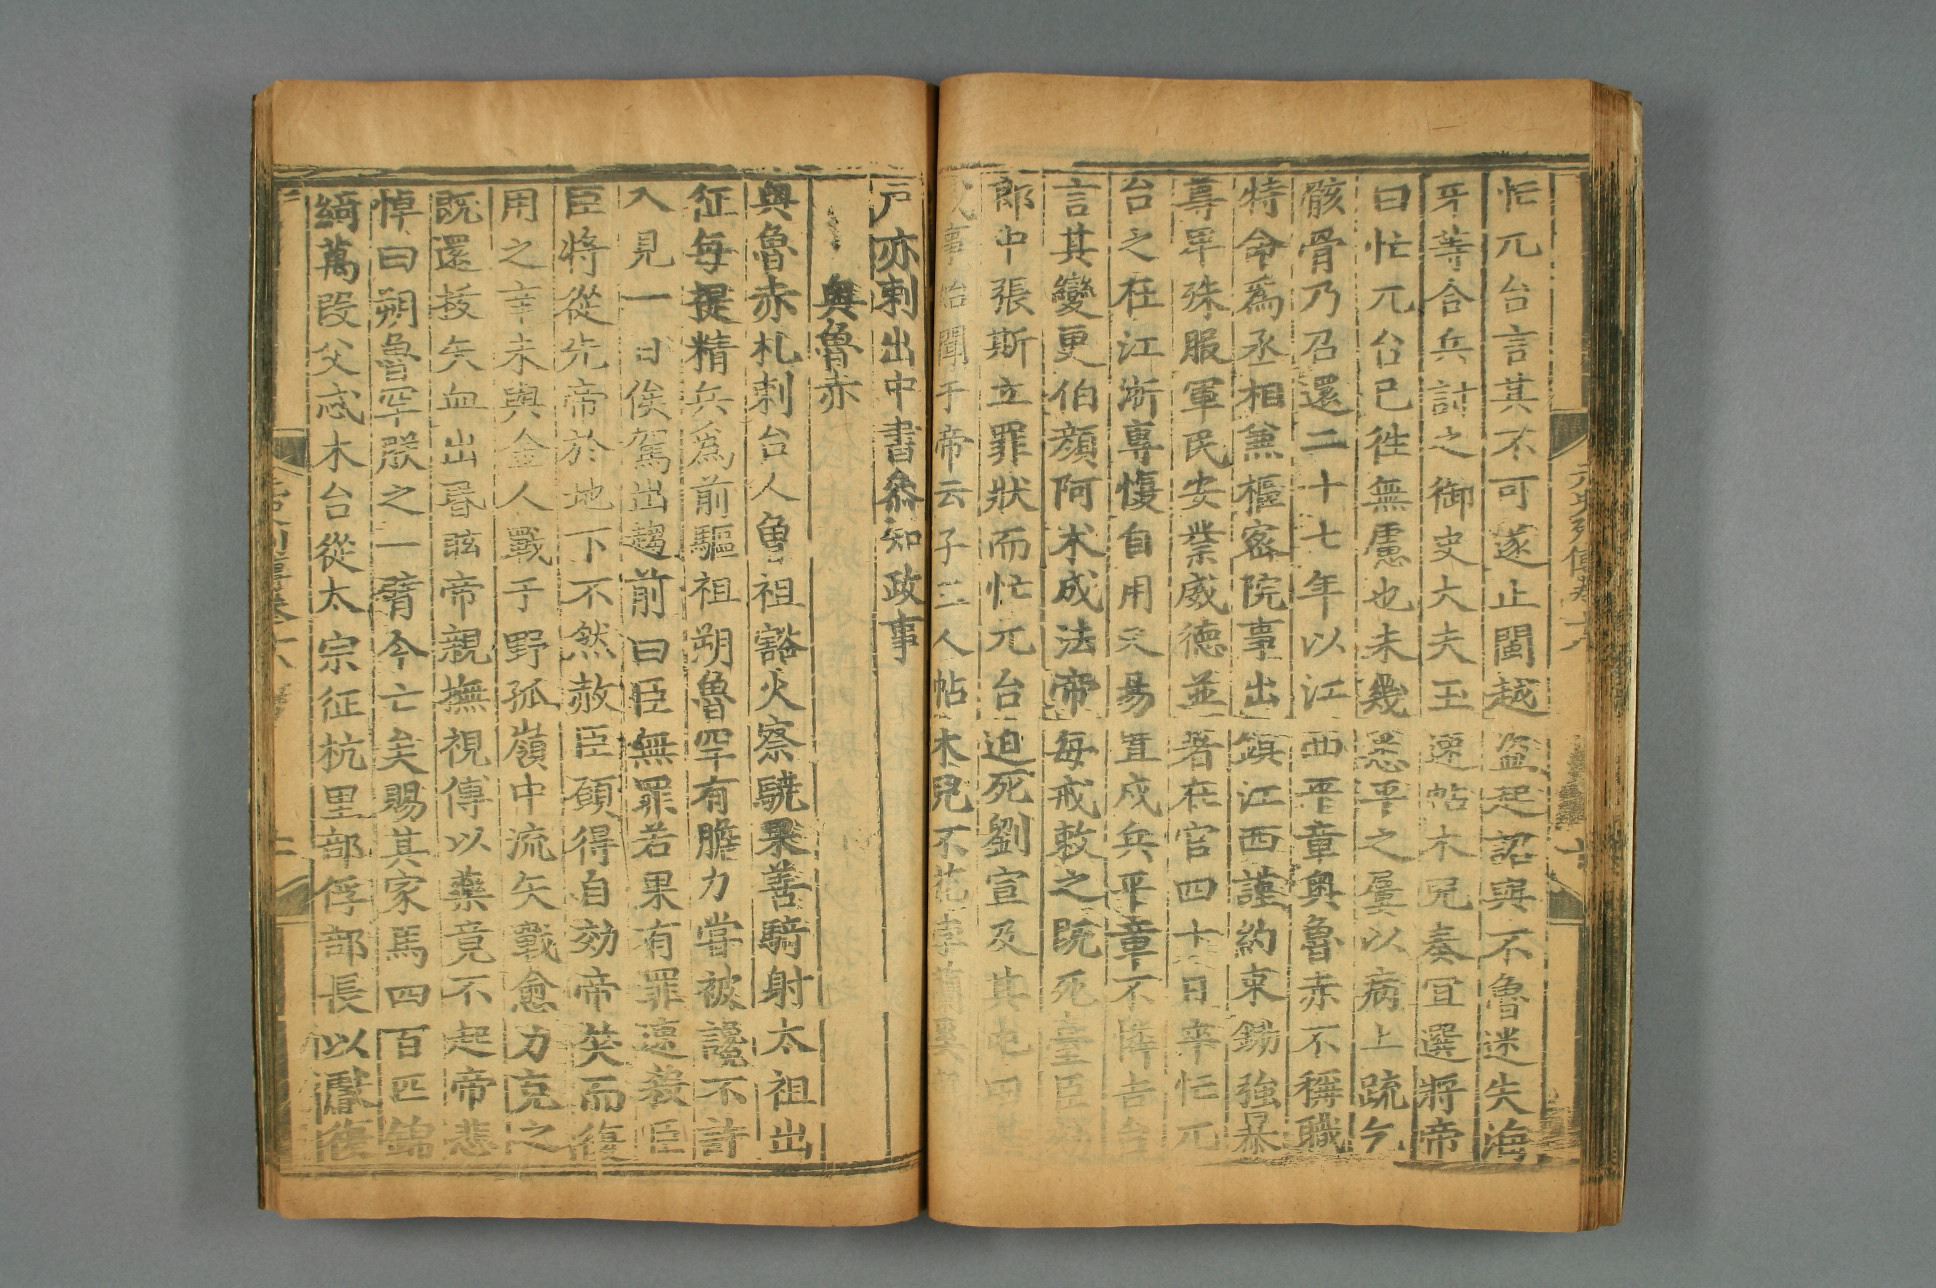 忙兀台言其不可遂止閩越盜起詔與不魯迷失海
牙等合兵討之御史大夫玉速帖木兒奏宜選將帝
曰忙兀台已徃無慮也未幾悉平之屢以病上疏乞
骸骨乃召還二十七年以江西平章奥魯赤不稱職
特命爲丞相兼樞密院事出鎮江西謹約束鋤強暴
尊卑殊服軍民安業威德並著在官四十日卒忙兀
台之在江浙專愎自用又易置戍兵平章不憐吉台
言其變更伯顔阿术成法帝每戒敕之既死臺臣劾
郎中張斯立罪狀而忙兀台迫死劉宣及其屯田
事始聞于帝云子三人帖木兒不花孛蘭奚
戶亦剌出中書參知政事
奥魯赤
奥魯赤札剌台人曾祖豁火察驍果善騎射太祖出
征每提精兵爲前驅祖朔魯罕有膽力嘗被讒不許
入見一日俟駕出趨前曰臣無罪若果有罪速殺臣
臣將從先帝於地下不然赦臣願得自効帝笑而復
用之辛未與金人戰于野孤嶺中流矢戰愈力克之
既還拔矢血出昬眩帝親撫視傅以藥竟不起帝悲
悼曰朔魯罕朕之一臂今亡矣賜其家馬四百匹錦
綺萬段父忒木台從太宗征杭里部俘部長以獻復